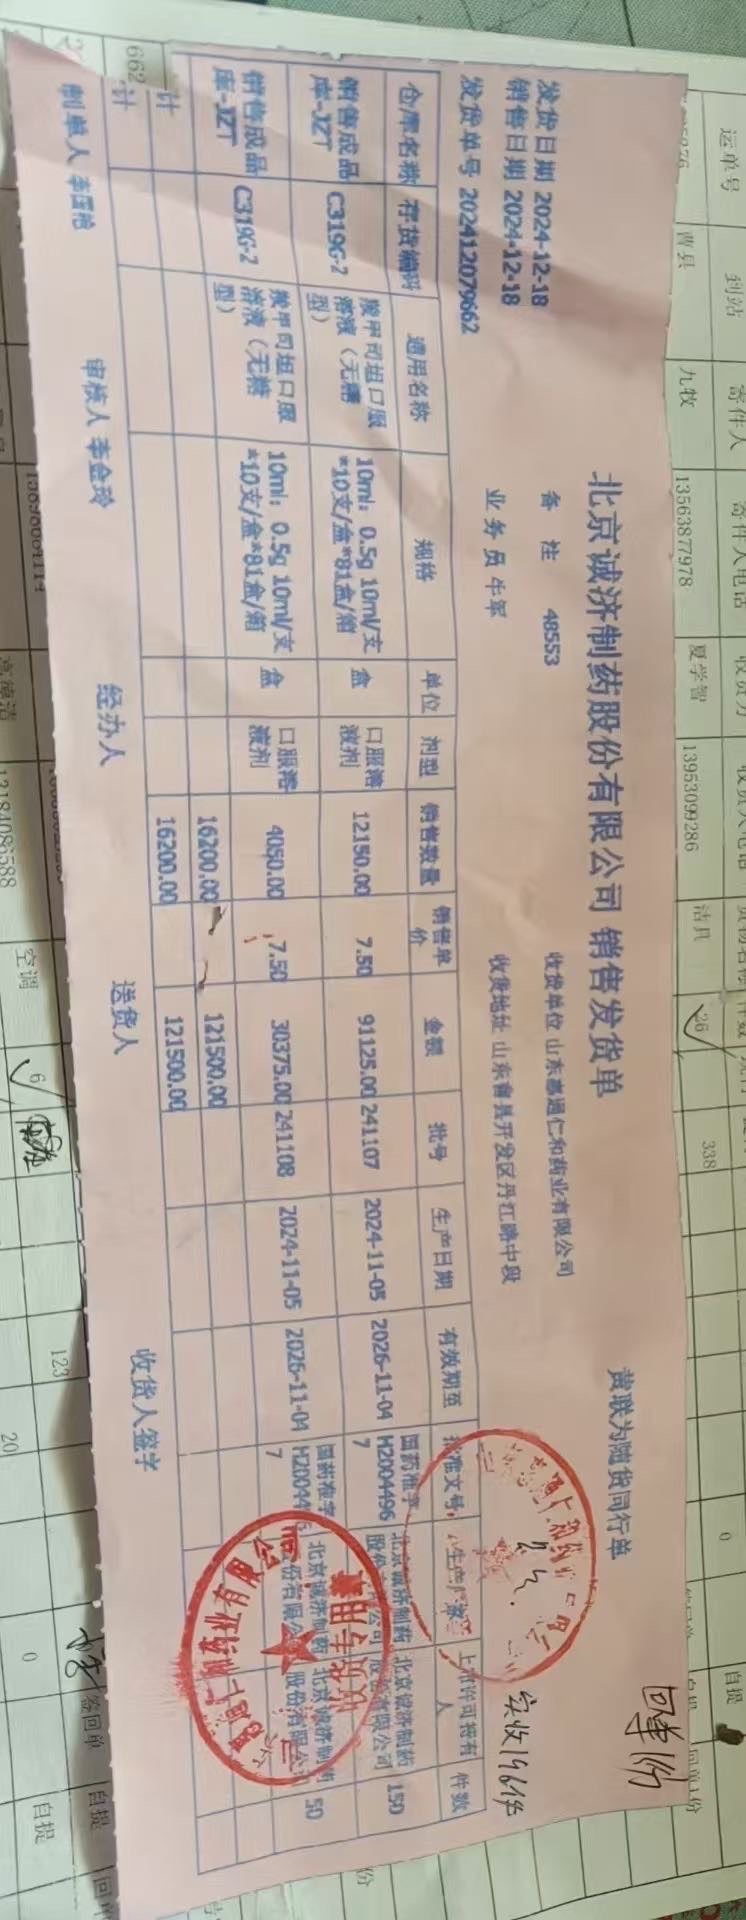 北京诚济制药股份有限公司 销售发货单
黄联为随货同行单
回单1份
发货日期 2024-12-18
备注 48553
收货单位 山东惠通仁和药业有限公司
销售日期 2024-12-18
发货单号 202412079662
业务员 牛军
收货地址 山东曹县开发区丹江路中段
实收196件
仓库名称 存货编码 通用名称 规格 单位 剂型 销售数量 销售单价 金额 批号 生产日期 有效期至 批准文号 生产厂家 上市许可持有人 件数
销售成品库-JZT C319G-2 羧甲司坦口服溶液（无糖型） 10ml：0.5g 10ml/支*10支/盒*81盒/箱 盒 口服溶液剂 12150.00 7.50 91125.00 241107 2024-11-05 2026-11-04 国药准字H20044967 北京诚济制药股份有限公司 北京诚济制药股份有限公司 150
销售成品库-JZT C319G-2 羧甲司坦口服溶液（无糖型） 10ml：0.5g 10ml/支*10支/盒*81盒/箱 盒 口服溶液剂 4050.00 7.50 30375.00 241108 2024-11-05 2026-11-04 国药准字H20044967 北京诚济制药股份有限公司 北京诚济制药股份有限公司 50
计 16200.00 121500.00
计 16200.00 121500.00
制单人 审核人 李金玲 经办人 送货人 收货人签字
收货专用章
运单号 到站 寄件人 寄件人电话 收货人电话
曹县 九牧 13563877978 夏学智 13953099286 洁具 26 338 0 自提 回单1份
空调 6
123
20 0 签回单 自提
自提
662